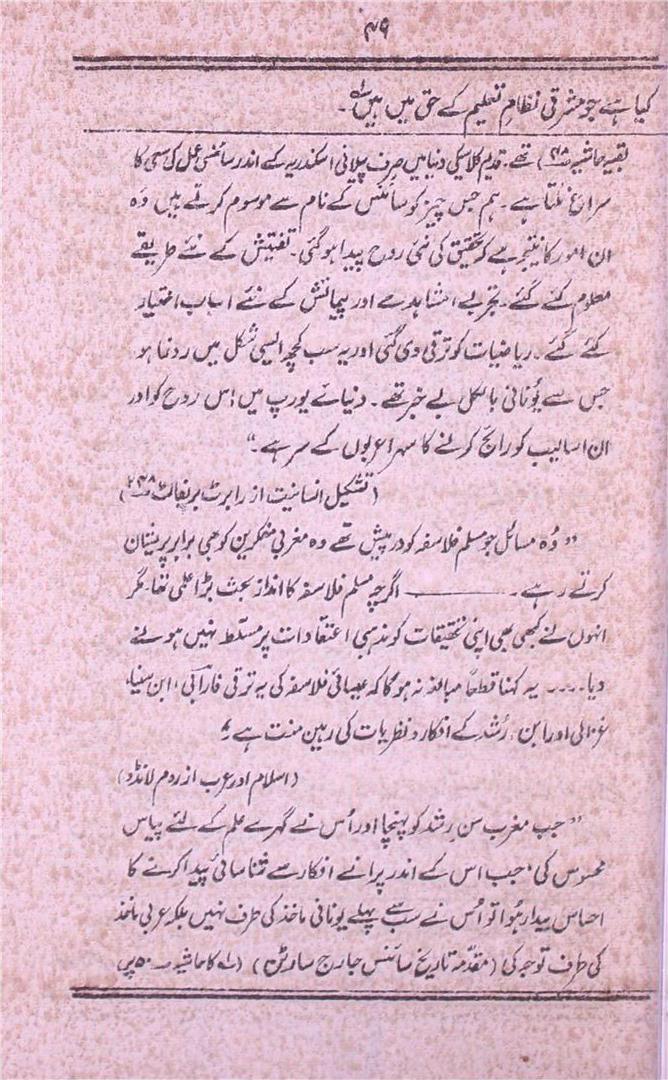 ۴۹
کیا ہے جو مشرقی نظامِ تعلیم کے حق میں ہیں۔
بقیہ حاشیہ ص۴۸) تھے۔ قدیم کلاسیکی دنیا میں صرف ہیلانی اسکندریہ کے اندر سائنسی عمل کی سعی کا
سراغ ملتا ہے۔ ہم جس چیز کو سائنس کے نام سے موسوم کرتے ہیں وُہ
ان امور کا نتیجہ ہے کہ تحقیق کی نئی روح پیدا ہوگئی۔ تفتیش کے نئے طریقے
معلوم کئے گئے۔ تجربے، مشاہدے اور پیمائش کے نئے اسباب اختیار
کئے گئے۔ ریاضیات کو ترقی دی گئی اور یہ سب کچھ ایسی شکل میں رونما ہو
جس سے یُونانی بالکل بے خبر تھے۔ دنیائے یورپ میں اِس روح کو اور
ان اسالیب کو رائج کرنے کا سہرا عربوں کے سر ہے۔"
(تشکیل انسانیت از رابرٹ بریفالٹ ص۲۴۸)
"وُہ مسائل جو مسلم فلاسفہ کو درپیش تھے وہ مغربی مفکرین کو بھی برابر پریشان
کرتے رہے۔ ——— اگرچہ مسلم فلاسفہ کا اندازِ بحث بڑا علمی تھا۔ مگر
انہوں نے کبھی بھی اپنی تحقیقات کو مذہبی اعتقادات پر مسلط نہیں ہونے
دیا.... یہ کہنا قطعاً مبالغہ نہ ہوگا کہ عیسائی فلاسفہ کی یہ ترقی فارابی، ابن سینا،
غزالی اور ابن رُشد کے افکار و نظریات کی رہین منت ہے"
(اسلام اور عرب از روم لانڈو)
"جب مغرب سنِ رشد کو پہنچا اور اُس نے گہرے علم کے لئے پیاس
محسوس کی، جب اس کے اندر پرانے افکار سے شناسائی پیدا کرنے کا
احساس بیدار ہُوا تو اُس نے سب سے پہلے یونانی ماخذ کی طرف نہیں بلکہ عربی ماخذ
کی طرف توجہ کی (مقدّمہ تاریخ سائنس جارج سارٹن) (کا حاشیہ ص۵۰ پر)